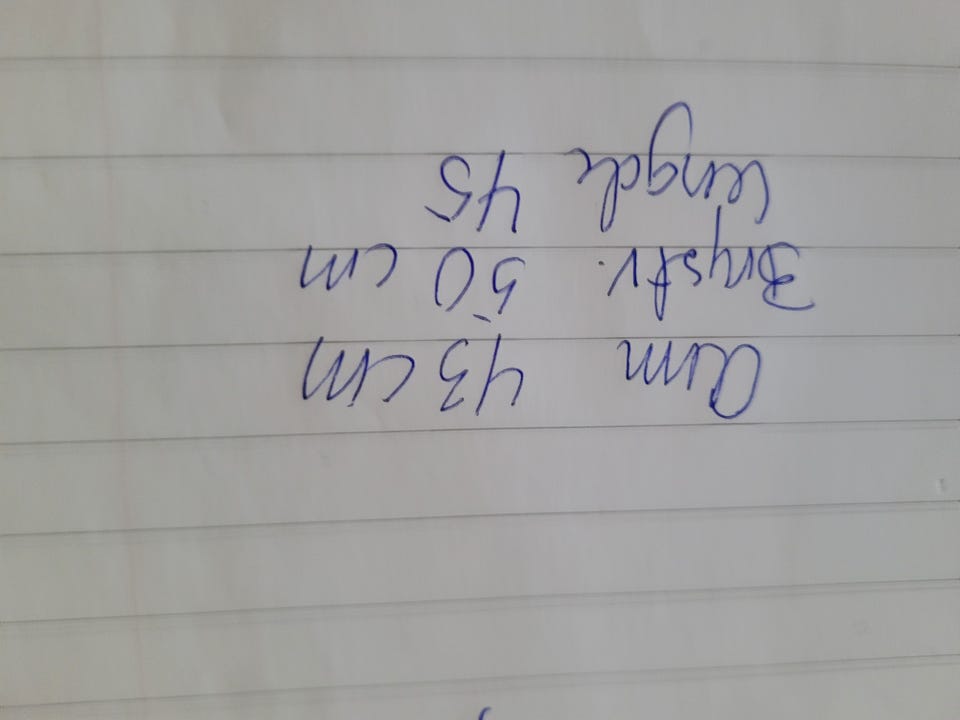 Arm 43 cm
Brystv. 50 cm
lengde 45